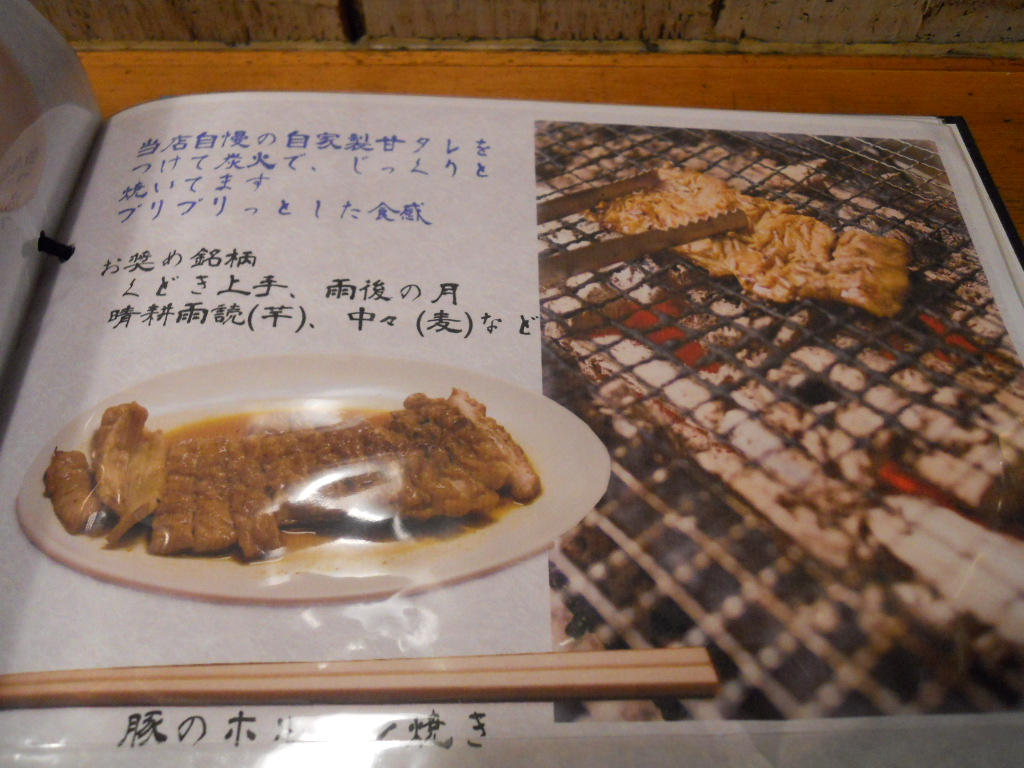 当店自慢の自家製甘タレを
つけて炭火で、じっくりと
焼いてます
プリプリっとした食感
お奨め銘柄
くどき上手、雨後の月
晴耕雨読(芋)、中々(麦)など
豚のホル 焼き